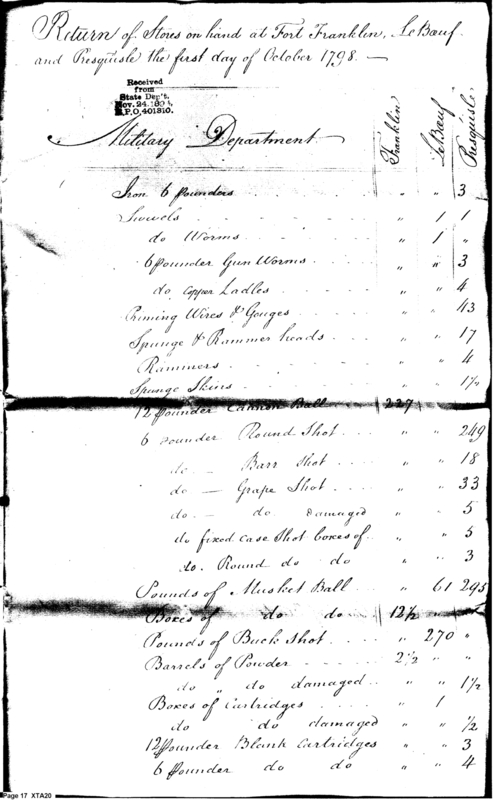 Return of Stores on hand at Fort Franklin, LeBœuf
and Presquisle the first day of October 1798. —
Received
from
State Dep't.
Nov. 24, 1894,
R.P.O, 401310.
Military Department
Franklin
LeBœuf
Presquisle
Iron 6 pounders " " 3
Swivels " 1 1
do Worms " 1 "
6 pounder Gun Worms " " 3
do Copper Ladles " " 4
Priming Wires & Gouges " " 43
Spunge & Rammer heads " " 17
Rammers " " 4
Spunge Skins " " 1½
12 pounder Cannon Ball 227
6 pounder Round Shot " " 249
do — Barr Shot " " 18
do — Grape Shot " " 33
do — do damaged " " 5
do fixed case Shot boxes of " " 5
do. Round do do " " 3
Pounds of Musket Ball " 61 295
Boxes of do do 12½ " "
Pounds of Buck Shot " 270 "
Barrels of Powder 2½ " "
do " do damaged " " 1½
Boxes of Cartridges " 1
do do damaged " " ½
12 pounder Blank Cartridges " " 3
6 pounder do do " " 4
Page 17 XTA20